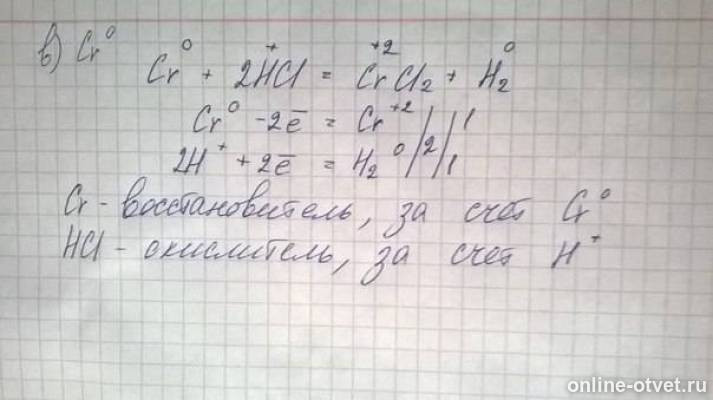 в) Cr⁰
Cr⁰ + 2H⁺Cl = Cr⁺²Cl₂ + H₂⁰
Cr⁰ -2e̅ = Cr⁺² | | 1
2H⁺ + 2e̅ = H₂⁰ |2| 1
Cr - восстановитель, за счет Cr⁰
HCl - окислитель, за счет H⁺
online-otvet.ru